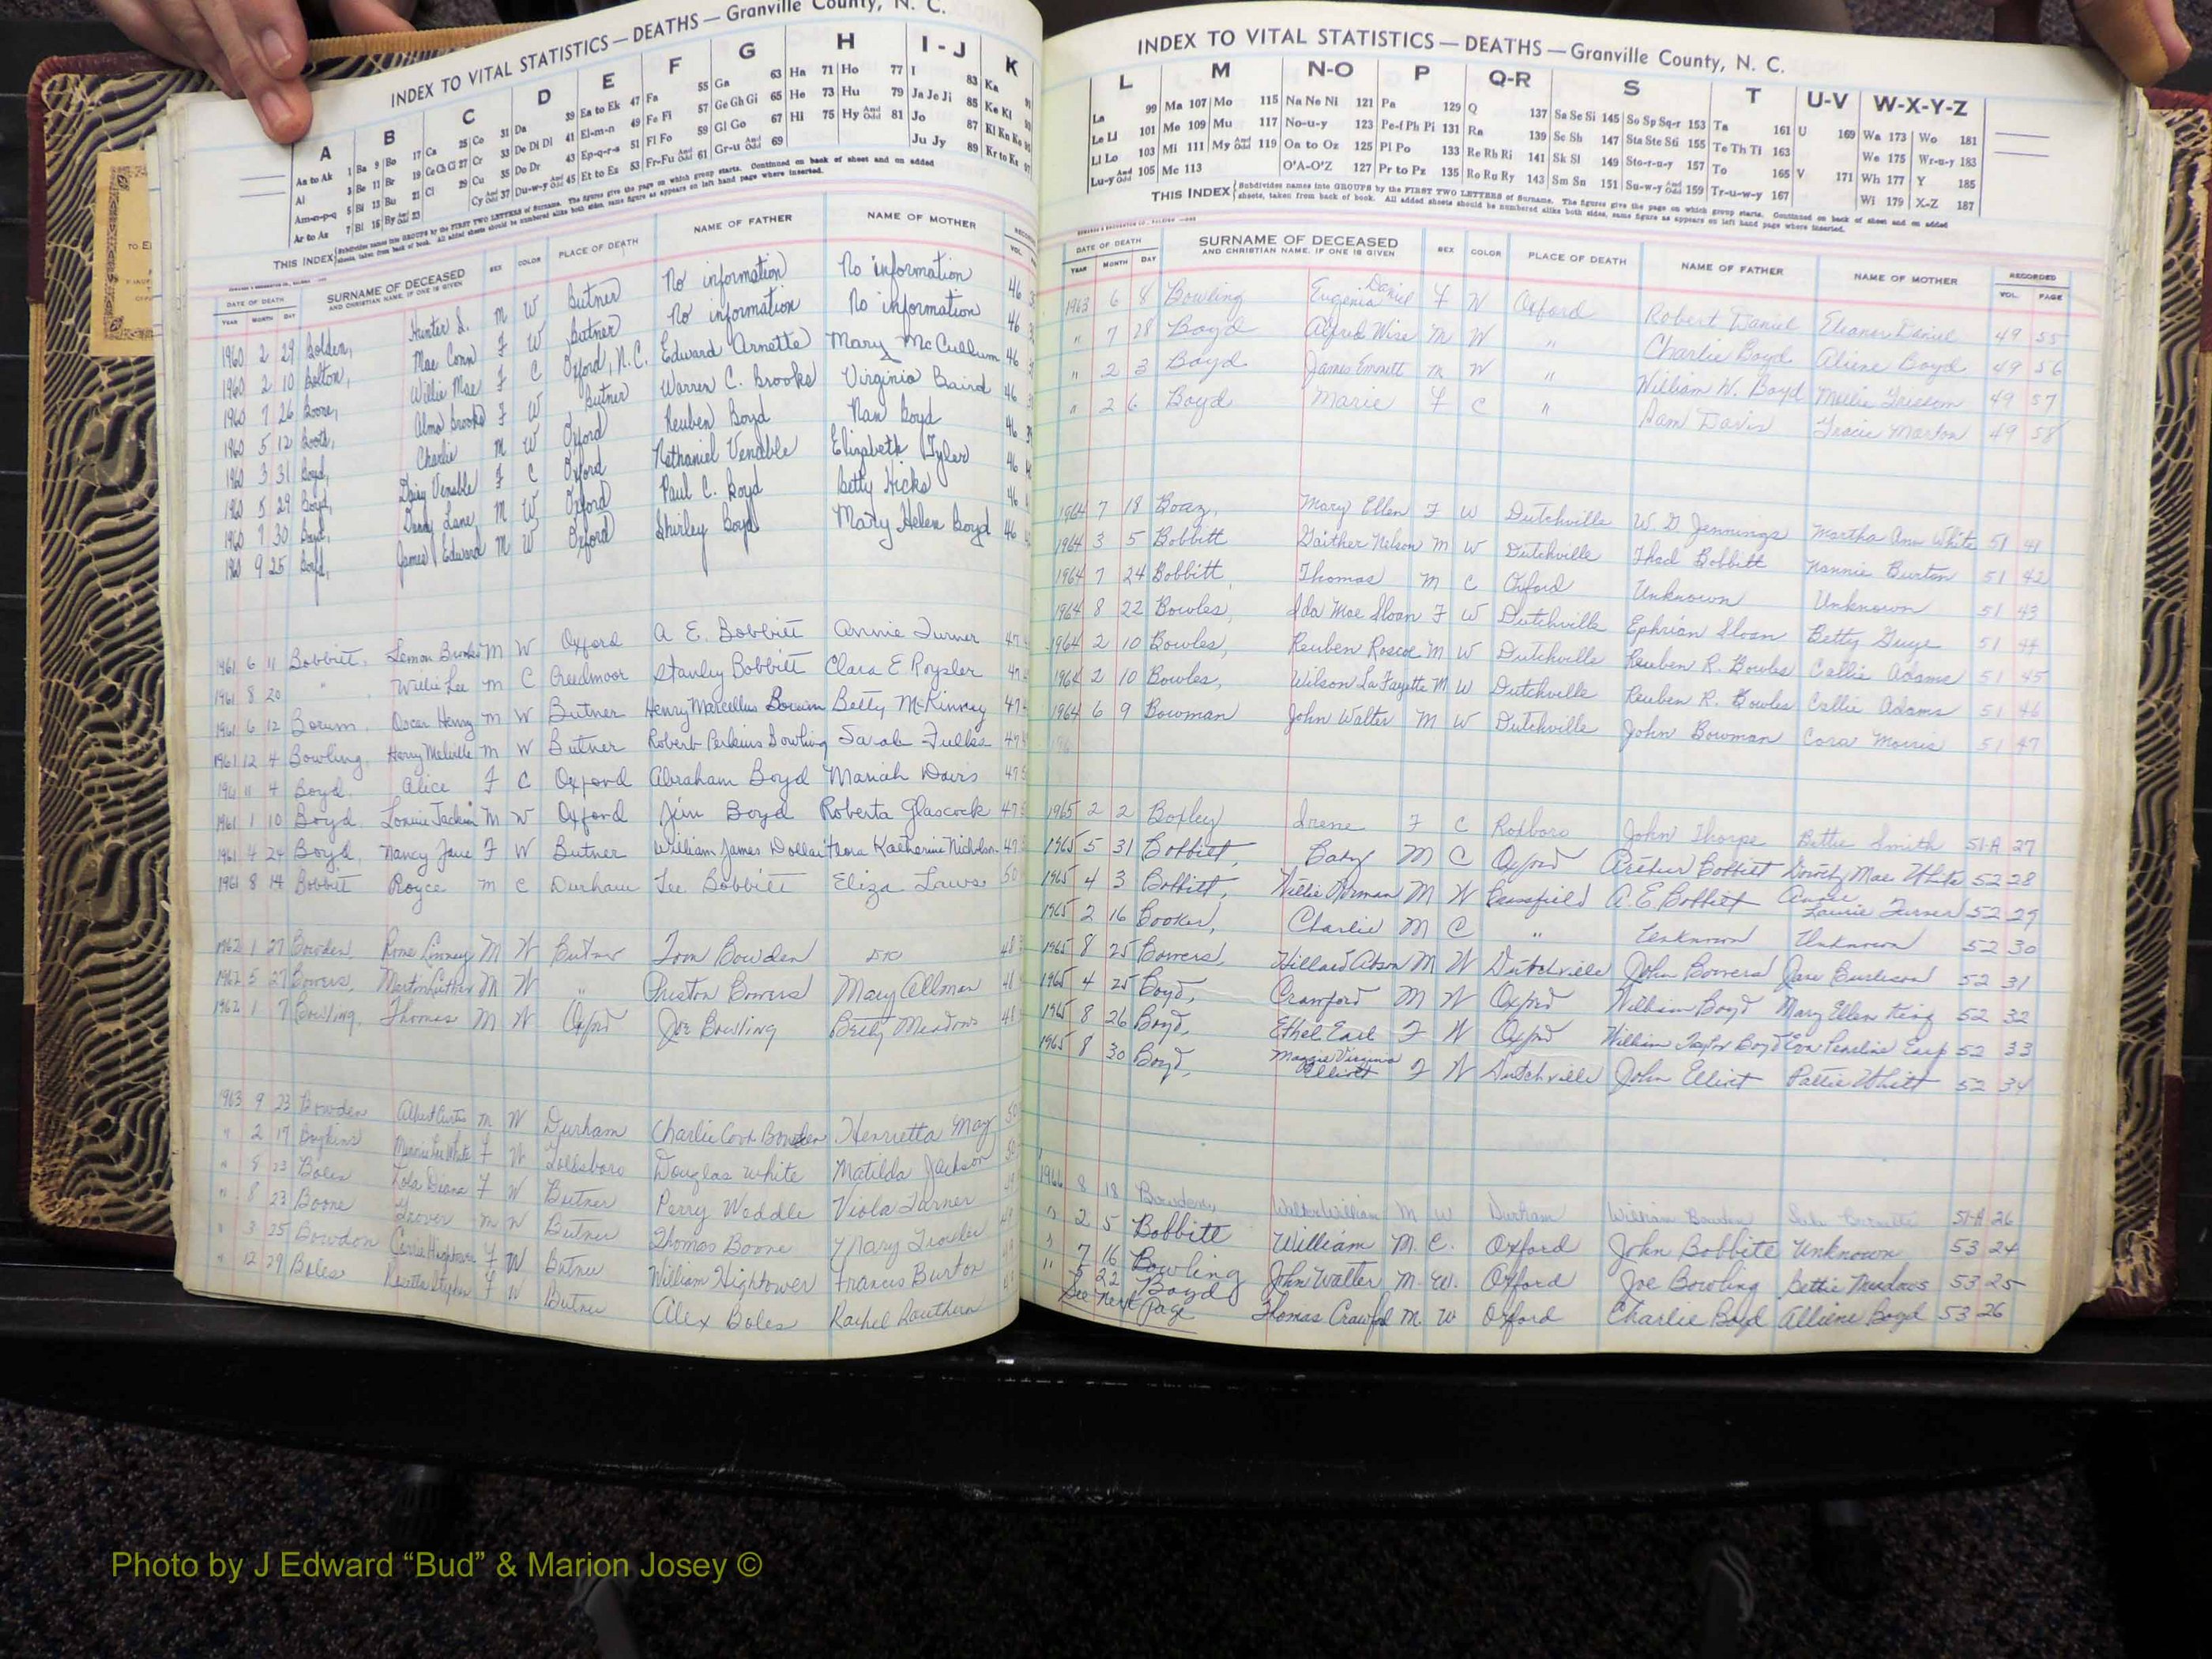 INDEX TO VITAL STATISTICS — DEATHS — Granville County, N. C.
A B C D E F G H I - J K
Aa to Ak 1 Ba 9 Bo 17 Ca 25 Co 31 Da 39 Ea to Ek 47 Fa 55 Ga 63 Ha 71 Ho 77 I 83 Ka
Al 3 Be 11 Br 19 Ce Ch Ci 27 Cr 33 De Di Dl 41 El-m-n 49 Fe Fi 57 Ge Gh Gi 65 He 73 Hu 79 Ja Je Ji 85 Ke Kl
Am-n-p-q 5 Bi 13 Bu 21 Cl 29 Cu 35 Do Dr 43 Ep-q-r-s 51 Fl Fo 59 Gl Go 67 Hi 75 Hy And Odd 81 Jo 87
Ar to Az 7 Bl 15 By And Odd 23 Cy And Odd 37 Du-w-y And Odd 45 Et to Ez 53 Fr-Fu And Odd 61 Gr-u And Odd 69 Ju Jy 89 Kr to Kz
THIS INDEX Subdivides names into GROUPS by the FIRST TWO LETTERS of Surname. The figures give the page on which group starts. Continued on back of sheet and on added
sheets, taken from back of book. All added sheets should be numbered alike both sides, same figure as appears on left hand page where inserted.
DATE OF DEATH SURNAME OF DECEASED SEX COLOR PLACE OF DEATH NAME OF FATHER NAME OF MOTHER
YEAR MONTH DAY AND CHRISTIAN NAME, IF ONE IS GIVEN VOL.
1960 2 29 Bolden, Hunter L. M W Butner No information No information 46
1960 2 10 Bolton, Mae Conn F W Butner No information No information 46
1960 7 26 Boone, Willie Mae F C Oxford, N.C. Edward Arnette Mary McCullum 46
1960 5 12 Booth, Alma Brooks F W Butner Warren C. Brooks Virginia Baird 46
1960 3 31 Boyd, Charlie M W Oxford Reuben Boyd Nan Boyd 46
1960 5 29 Boyd, Daisy Venable F C Oxford Nathaniel Venable Elizabeth Tyler 46
1960 7 30 Boyd, Danny Lane M W Oxford Paul C. Boyd Betty Hicks 46
1960 9 25 Boyd, James Edward M W Oxford Shirley Boyd Mary Helen Boyd 46
1961 6 11 Bobbitt, Lemon Brooks M W Oxford A E. Bobbitt Annie Turner 47
1961 8 20 " Willie Lee M C Creedmoor Stanley Bobbitt Clara E Royster 47
1961 6 12 Borum, Oscar Henry M W Butner Henry Marcellus Borum Betty McKinney 47
1961 12 4 Bowling, Henry Melville M W Butner Robert Perkins Bowling Sarah Fulks 47
1961 11 4 Boyd, Alice F C Oxford Abraham Boyd Mariah Davis 47
1961 1 10 Boyd, Lonnie Jackson M W Oxford Jim Boyd Roberta Glascock 47
1961 4 24 Boyd, Nancy Jane F W Butner William James Dollar Flora Katherine Nicholson 47
1961 8 14 Bobbitt Royce M C Durham Lee Bobbitt Eliza Laws 50
1962 1 27 Bowden, Rome Linney M W Butner Tom Bowden 48
1962 5 27 Bowers, Martin Luther M W " Preston Bowers Mary Allman 48
1962 1 7 Bowling, Thomas M W Oxford Joe Bowling Betty Meadows 48
1963 9 23 Bowden Albert Curtis M W Durham Charlie Cook Bowden Henrietta May 50
" 2 17 Boykins Minnie Lee White F W Goldsboro Douglas White Matilda Jackson 50
" 8 23 Boles Lola Diana F W Butner Perry Weddle Viola Turner
" 8 23 Boone Grover M W Butner Thomas Boone Mary
" 3 25 Bowdon Carrie Hightower F W Butner William Hightower Francis Burton
" 12 29 Boles F W Butner Alex Boles Rachel
INDEX TO VITAL STATISTICS — DEATHS — Granville County, N. C.
L M N-O P Q-R S T U-V W-X-Y-Z
La 99 Ma 107 Mo 115 Na Ne Ni 121 Pa 129 Q 137 Sa Se Si 145 So Sp Sq-r 153 Ta 161 U 169 Wa 173 Wo 181
Le Li 101 Me 109 Mu 117 No-u-y 123 Pe-f Ph Pi 131 Ra 139 Sc Sh 147 Sta Ste Sti 155 Te Th Ti 163 We 175 Wr-u-y 183
Ll Lo 103 Mi 111 My And Odd 119 Oa to Oz 125 Pl Po 133 Re Rh Ri 141 Sk Sl 149 Sto-r-u-y 157 To 165 V 171 Wh 177 Y 185
Lu-y And Odd 105 Mc 113 O'A-O'Z 127 Pr to Pz 135 Ro Ru Ry 143 Sm Sn 151 Su-w-y And Odd 159 Tr-u-w-y 167 Wi 179 X-Z 187
THIS INDEX Subdivides names into GROUPS by the FIRST TWO LETTERS of Surname. The figures give the page on which group starts. Continued on back of sheet and on added
sheets, taken from back of book. All added sheets should be numbered alike both sides, same figure as appears on left hand page where inserted.
DATE OF DEATH SURNAME OF DECEASED SEX COLOR PLACE OF DEATH NAME OF FATHER NAME OF MOTHER RECORDED
YEAR MONTH DAY AND CHRISTIAN NAME, IF ONE IS GIVEN VOL. PAGE
1963 6 8 Bowling Eugenia Daniel F W Oxford Robert Daniel Eleanor Daniel 49 55
" 7 28 Boyd Alfred Wise M W " Charlie Boyd Aliene Boyd 49 56
" 2 3 Boyd James Emmett M W " William W. Boyd Mollie Grissom 49 57
" 2 6 Boyd Marie F C " Sam Davis Gracie Marton 49 58
1964 7 18 Boaz, Mary Ellen F W Dutchville W. G. Jennings Martha Ann White 51 41
1964 3 5 Bobbitt Gaither Nelson M W Dutchville Thad Bobbitt Nannie Burton 51 42
1964 7 24 Bobbitt, Thomas M C Oxford Unknown Unknown 51 43
1964 8 22 Bowles, Ida Mae Sloan F W Dutchville Ephrian Sloan Betty Guye 51 44
1964 2 10 Bowles, Reuben Roscoe M W Dutchville Reuben R. Bowles Callie Adams 51 45
1964 2 10 Bowles, Wilson LaFayette M W Dutchville Reuben R. Bowles Callie Adams 51 46
1964 6 9 Bowman John Walter M W Dutchville John Bowman Cora Morris 51 47
1965 2 2 Boxley Irene F C Roxboro John Thorpe Bettie Smith 51-A 27
1965 5 31 Bobbitt, Baby M C Oxford Arthur Bobbitt Dorothy Mae White 52 28
1965 4 3 Bobbitt, Willie Norman M W A. E. Bobbitt Annie Laurie Turner 52 29
1965 2 16 Booker, Charlie M C " Unknown Unknown 52 30
1965 8 25 Bowers, Hillard Abson M W Dutchville John Bowers Jane Burleson 52 31
1965 4 25 Boyd, Crawford M W Oxford William Boyd Mary Ellen King 52 32
1965 8 26 Boyd, Ethel Earl F W Oxford William Taylor Boyd Eva Pearline Earp 52 33
1965 8 30 Boyd, Maggie Virginia Elliott F W Dutchville John Elliott Pattie Whitt 52 34
1966 8 18 Bowden, Walter William M W Durham William Bowden 51-A 26
" 2 5 Bobbitt William M. C. Oxford John Bobbitt Unknown 53 24
" 7 16 Bowling John Walter M. W. Oxford Joe Bowling Bettie Meadows 53 25
" 5 22 Boyd Thomas Crawford M. W Oxford Charlie Boyd Alliene Boyd 53 26
See next Page
Photo by J Edward “Bud” & Marion Josey ©